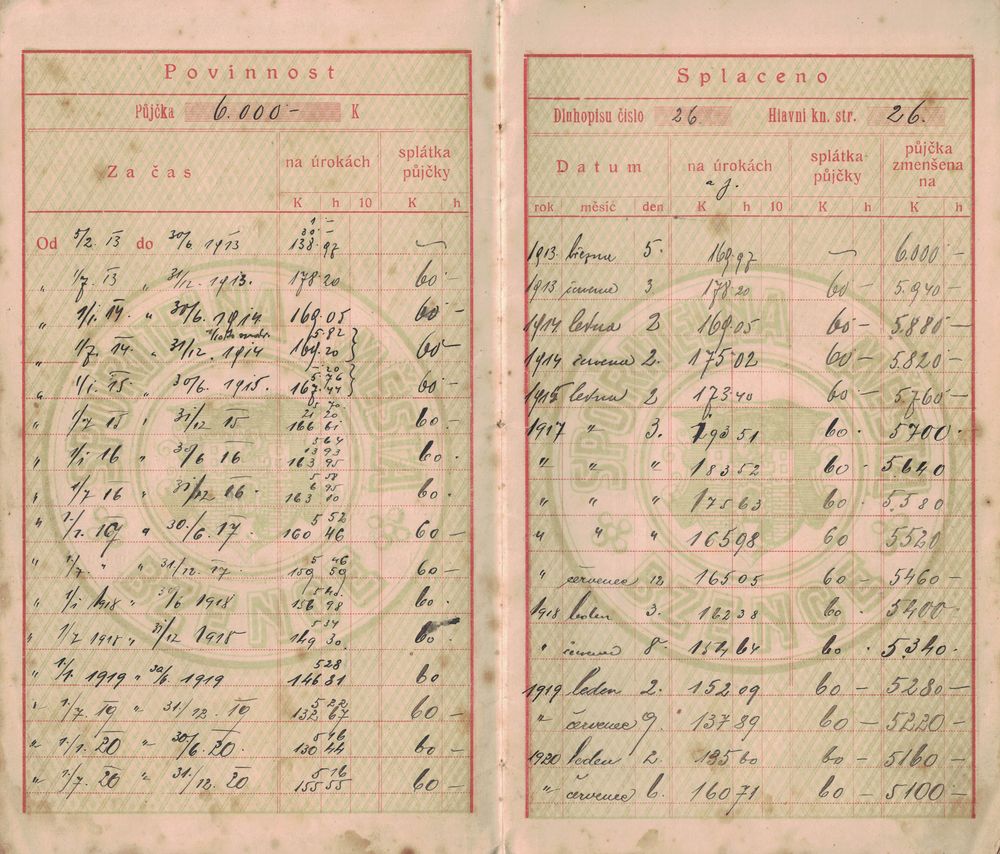 Povinnost
Půjčka 6.000·- K
Za čas
na úrokách
splátka půjčky
K h 10 K h
1 -
30 -
Od 5/2. 13 do 30/6. 1913 138·97 —
" 1/7. 13 " 31/12. 1913. 178·20 60·-
" 1/1. 14. " 30/6. 1914 169.05 60·-
5.82
" 1/7. 14. " 31/12. 1914 169.20 60 -
-.20
5 76
" 1/1. 15. " 30/6. 1915. 167.44 60·-
5 70
21 20
" 1/7 15 " 31/12 15 166 61 60.-
5 64
13 93
" 1/1 16 " 30/6 16 163 95 60.
5 58
6 95
" 1/7 16 " 31/12 16. 163 10 60.
5 52
" 1/1. 17 " 30./6. 17. 160 46 60 -
5 46
" 1/7. " " 31/12. 17. 159 59 60 -
5 40.
" 1/1 1918 " 30/6 1918 156 98 60.
5 34
" 1/7 1918 " 31/12 1918 149 30. 60.
5 28
" 1./1. 1919 " 30/6. 1919 146 81 60
5 22
" 1./7. 19 " 31./12. 19 132 67 60 -
5 16
" 1./1. 20 " 30/6. 20. 130 44 60 -
5 16
" 1./7. 20 " 31./12. 20 155 55 60 -
Splaceno
Dluhopisu číslo 26 Hlavní kn. str. 26.
Datum
na úrokách
a j.
splátka půjčky
půjčka zmenšena na
rok měsíc den K h 10 K h K h
1913 března 5. 169.97 — 6.000·-
1913 června 3. 178·20 60 - 5.940 -
1914 ledna 2 169.05 60 - 5.880 -
1914 června 2. 175·02 60 - 5.820 -
1915 ledna 2 173·40 60 - 5.760 -
1917 " 3. 193 51 60 · 5700·
" " " 183 52 60 · 5.640
" " " 175 63 60 · 5.580
" " " 165 98 60 5520
" červenec 12. 165 05 60 - 5460 -
1918 leden 3. 162 38 60 · 5400 ·
" června 8. 154 64 60 · 5.340.
1919 leden 2. 152 09 60 - 5280 -
" červenec 9. 137 89 60 - 5220 -
1920 leden 2. 135 60 60 - 5160 -
" červenec 6. 160 71 60 - 5100 -